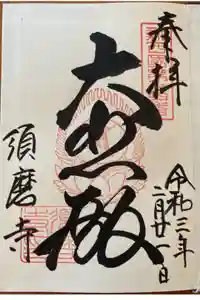 奉拝
令和三年
二月廿一日
大悲殿
須磨寺